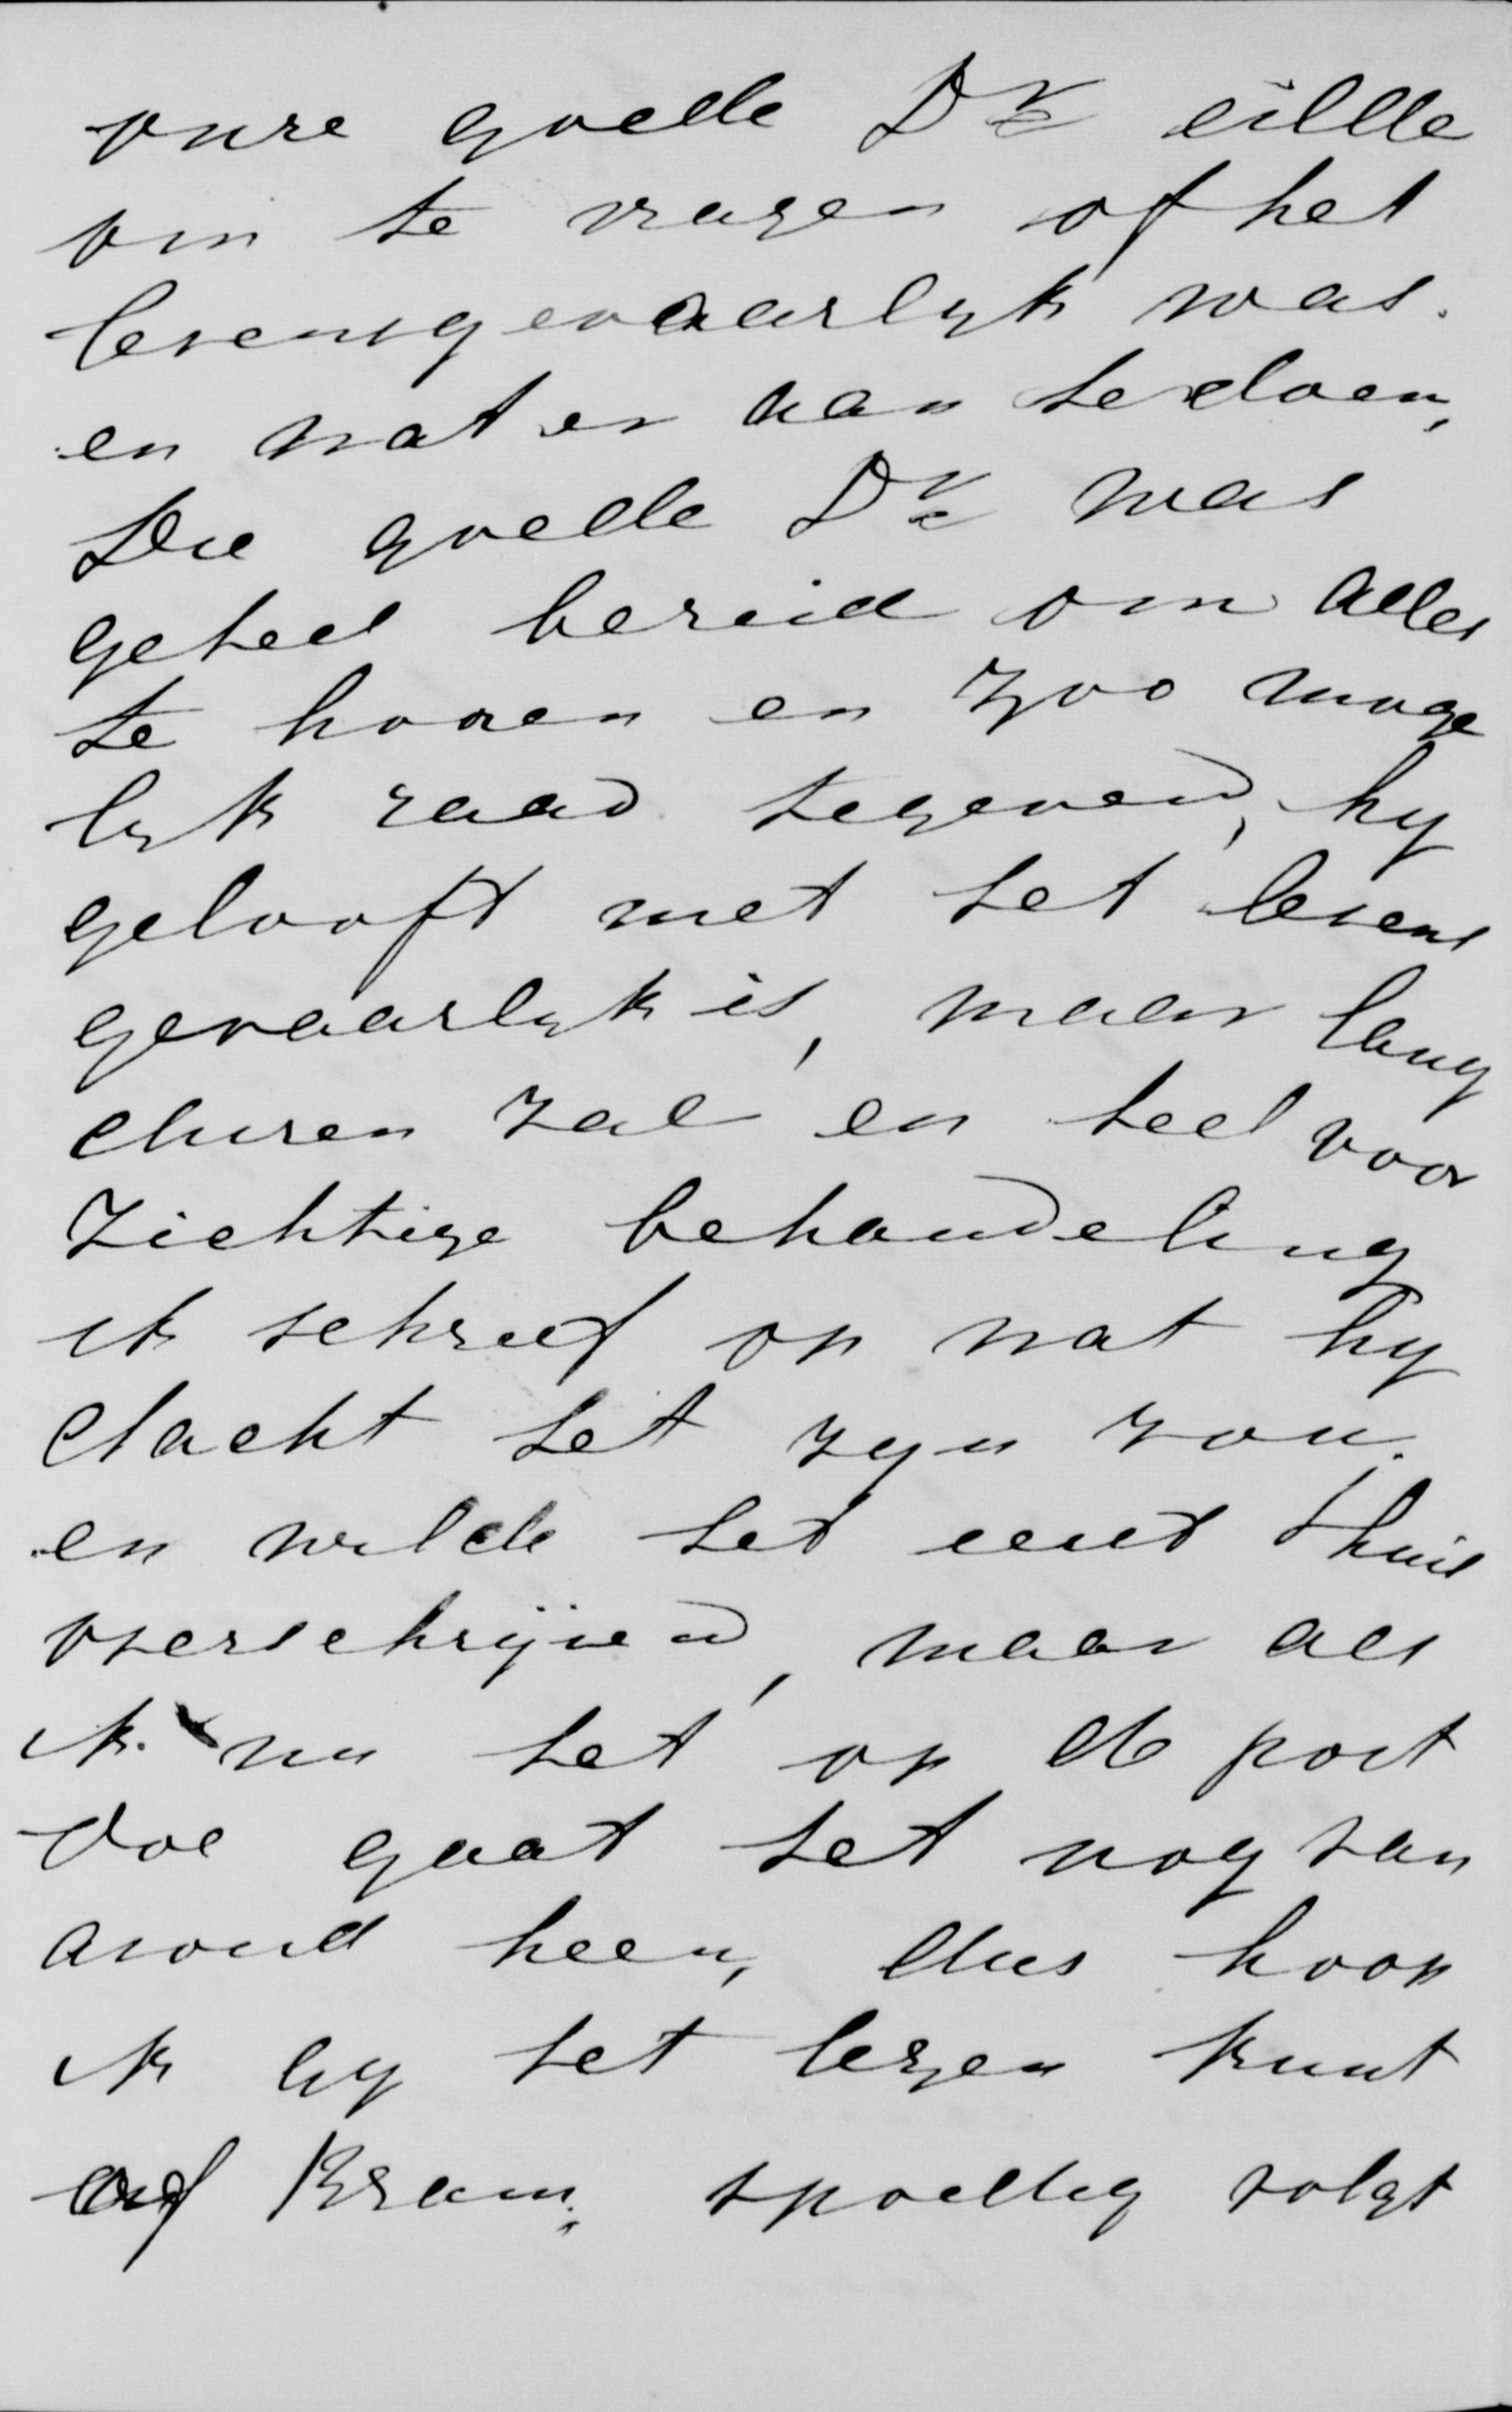 onze goede Dr eilde
om te vragen of het
levensgevaarlyk was.
en wat er aan te doen,
Die goede Dr was
geheel bereid om alles
te hooren en zoo moge
lyk raad tegeven, hy
gelooft niet het levens
gevaarlyk is, maar lang
duren zal en heel voor
zichtige behandeling
ik schreef op wat hy
dacht het zyn zou.
en wilde het eerst thuis
overschrijven, maar als
ik nu het op de post
doe gaat het nog van
avond heen, dus hoop
ik gy het lezen kunt
of Bram, spoedig volgt